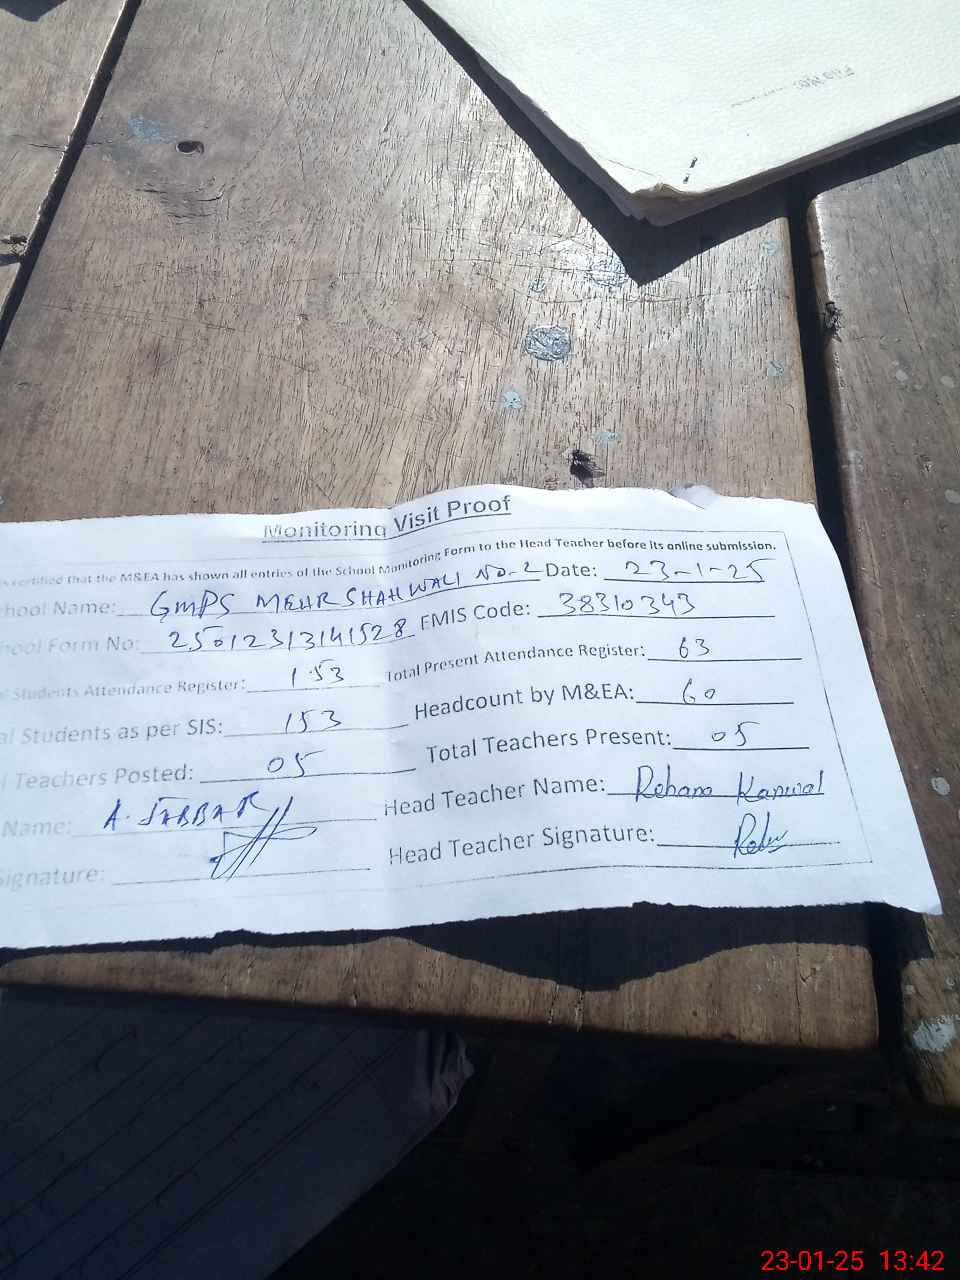 Monitoring Visit Proof
certified that the M&EA has shown all entries of the School Monitoring Form to the Head Teacher before its online submission.
hool Name: GMPS MEHR SHAH WALI NO-2 Date: 23-1-25
hool Form No: 25012313141528 EMIS Code: 38310343
Students Attendance Register: 153 Total Present Attendance Register: 63
al Students as per SIS: 153 Headcount by M&EA: 60
l Teachers Posted: 05 Total Teachers Present: 05
Name: A. JABBAR Head Teacher Name: Rehana Kanwal
Signature: Head Teacher Signature:
23-01-25 13:42